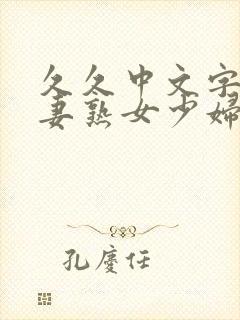 久久中文字
妻熟女少婦
孔廙任